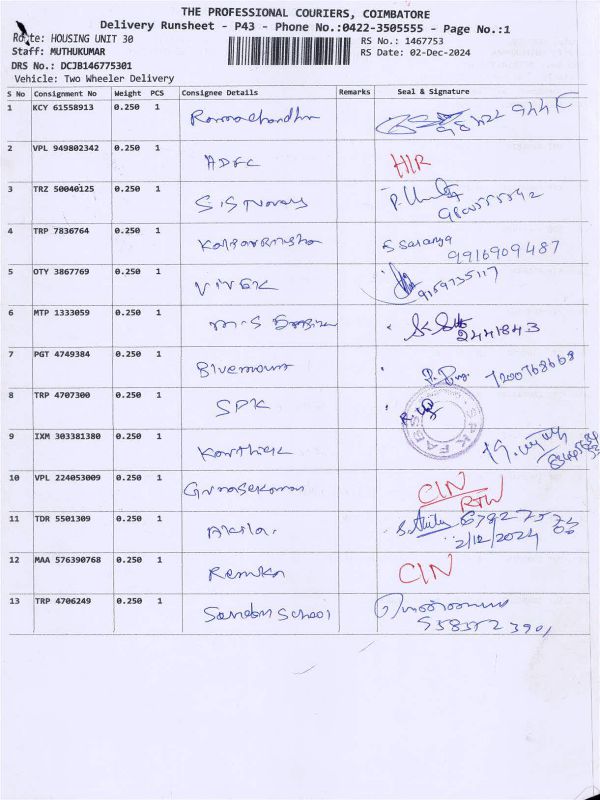 THE PROFESSIONAL COURIERS, COIMBATORE
Delivery Runsheet - P43 - Phone No.:0422-3505555 - Page No.:1
Route: HOUSING UNIT 30
RS No.: 1467753
Staff: MUTHUKUMAR
RS Date: 02-Dec-2024
DRS No.: DCJB146775301
Vehicle: Two Wheeler Delivery
S No Consignment No Weight PCS Consignee Details Remarks Seal & Signature
1 KCY 61558913 0.250 1 Ramachandhr
2 VPL 949802342 0.250 1 ADFC HIR
3 TRZ 50040125 0.250 1
4 TRP 7836764 0.250 1 S Saranya
9916909487
5 OTY 3867769 0.250 1 VIVEK 9159735117
6 MTP 1333059 0.250 1 2441843
7 PGT 4749384 0.250 1 Bluemount 7200768668
8 TRP 4707300 0.250 1 SPK
9 IXM 303381380 0.250 1 Karthick
10 VPL 224053009 0.250 1 Gunasekaran CIN
RTW
11 TDR 5501309 0.250 1 Akila.
2/12/2024
12 MAA 576390768 0.250 1 Renuka CIN
13 TRP 4706249 0.250 1 School